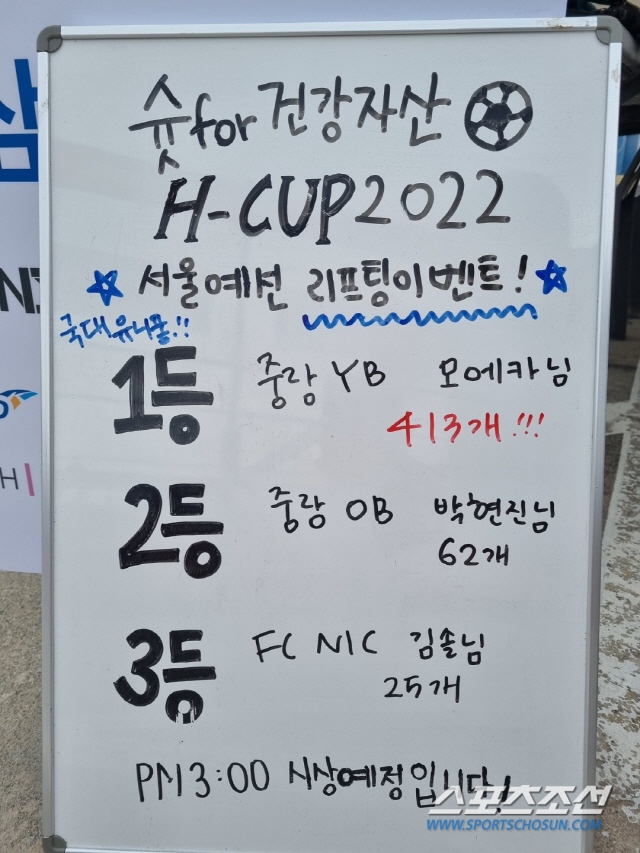 슛for건강자산
H-CUP2022
서울예선 리프팅이벤트!
국대유니폼!!
1등 중랑 YB 모에카님
413개!!!
2등 중랑 OB 박현진님
62개
3등 FC NIC 김솔님
25개
PM3:00 시상예정입니당
스포츠조선
WWW.SPORTSCHOSUN.COM